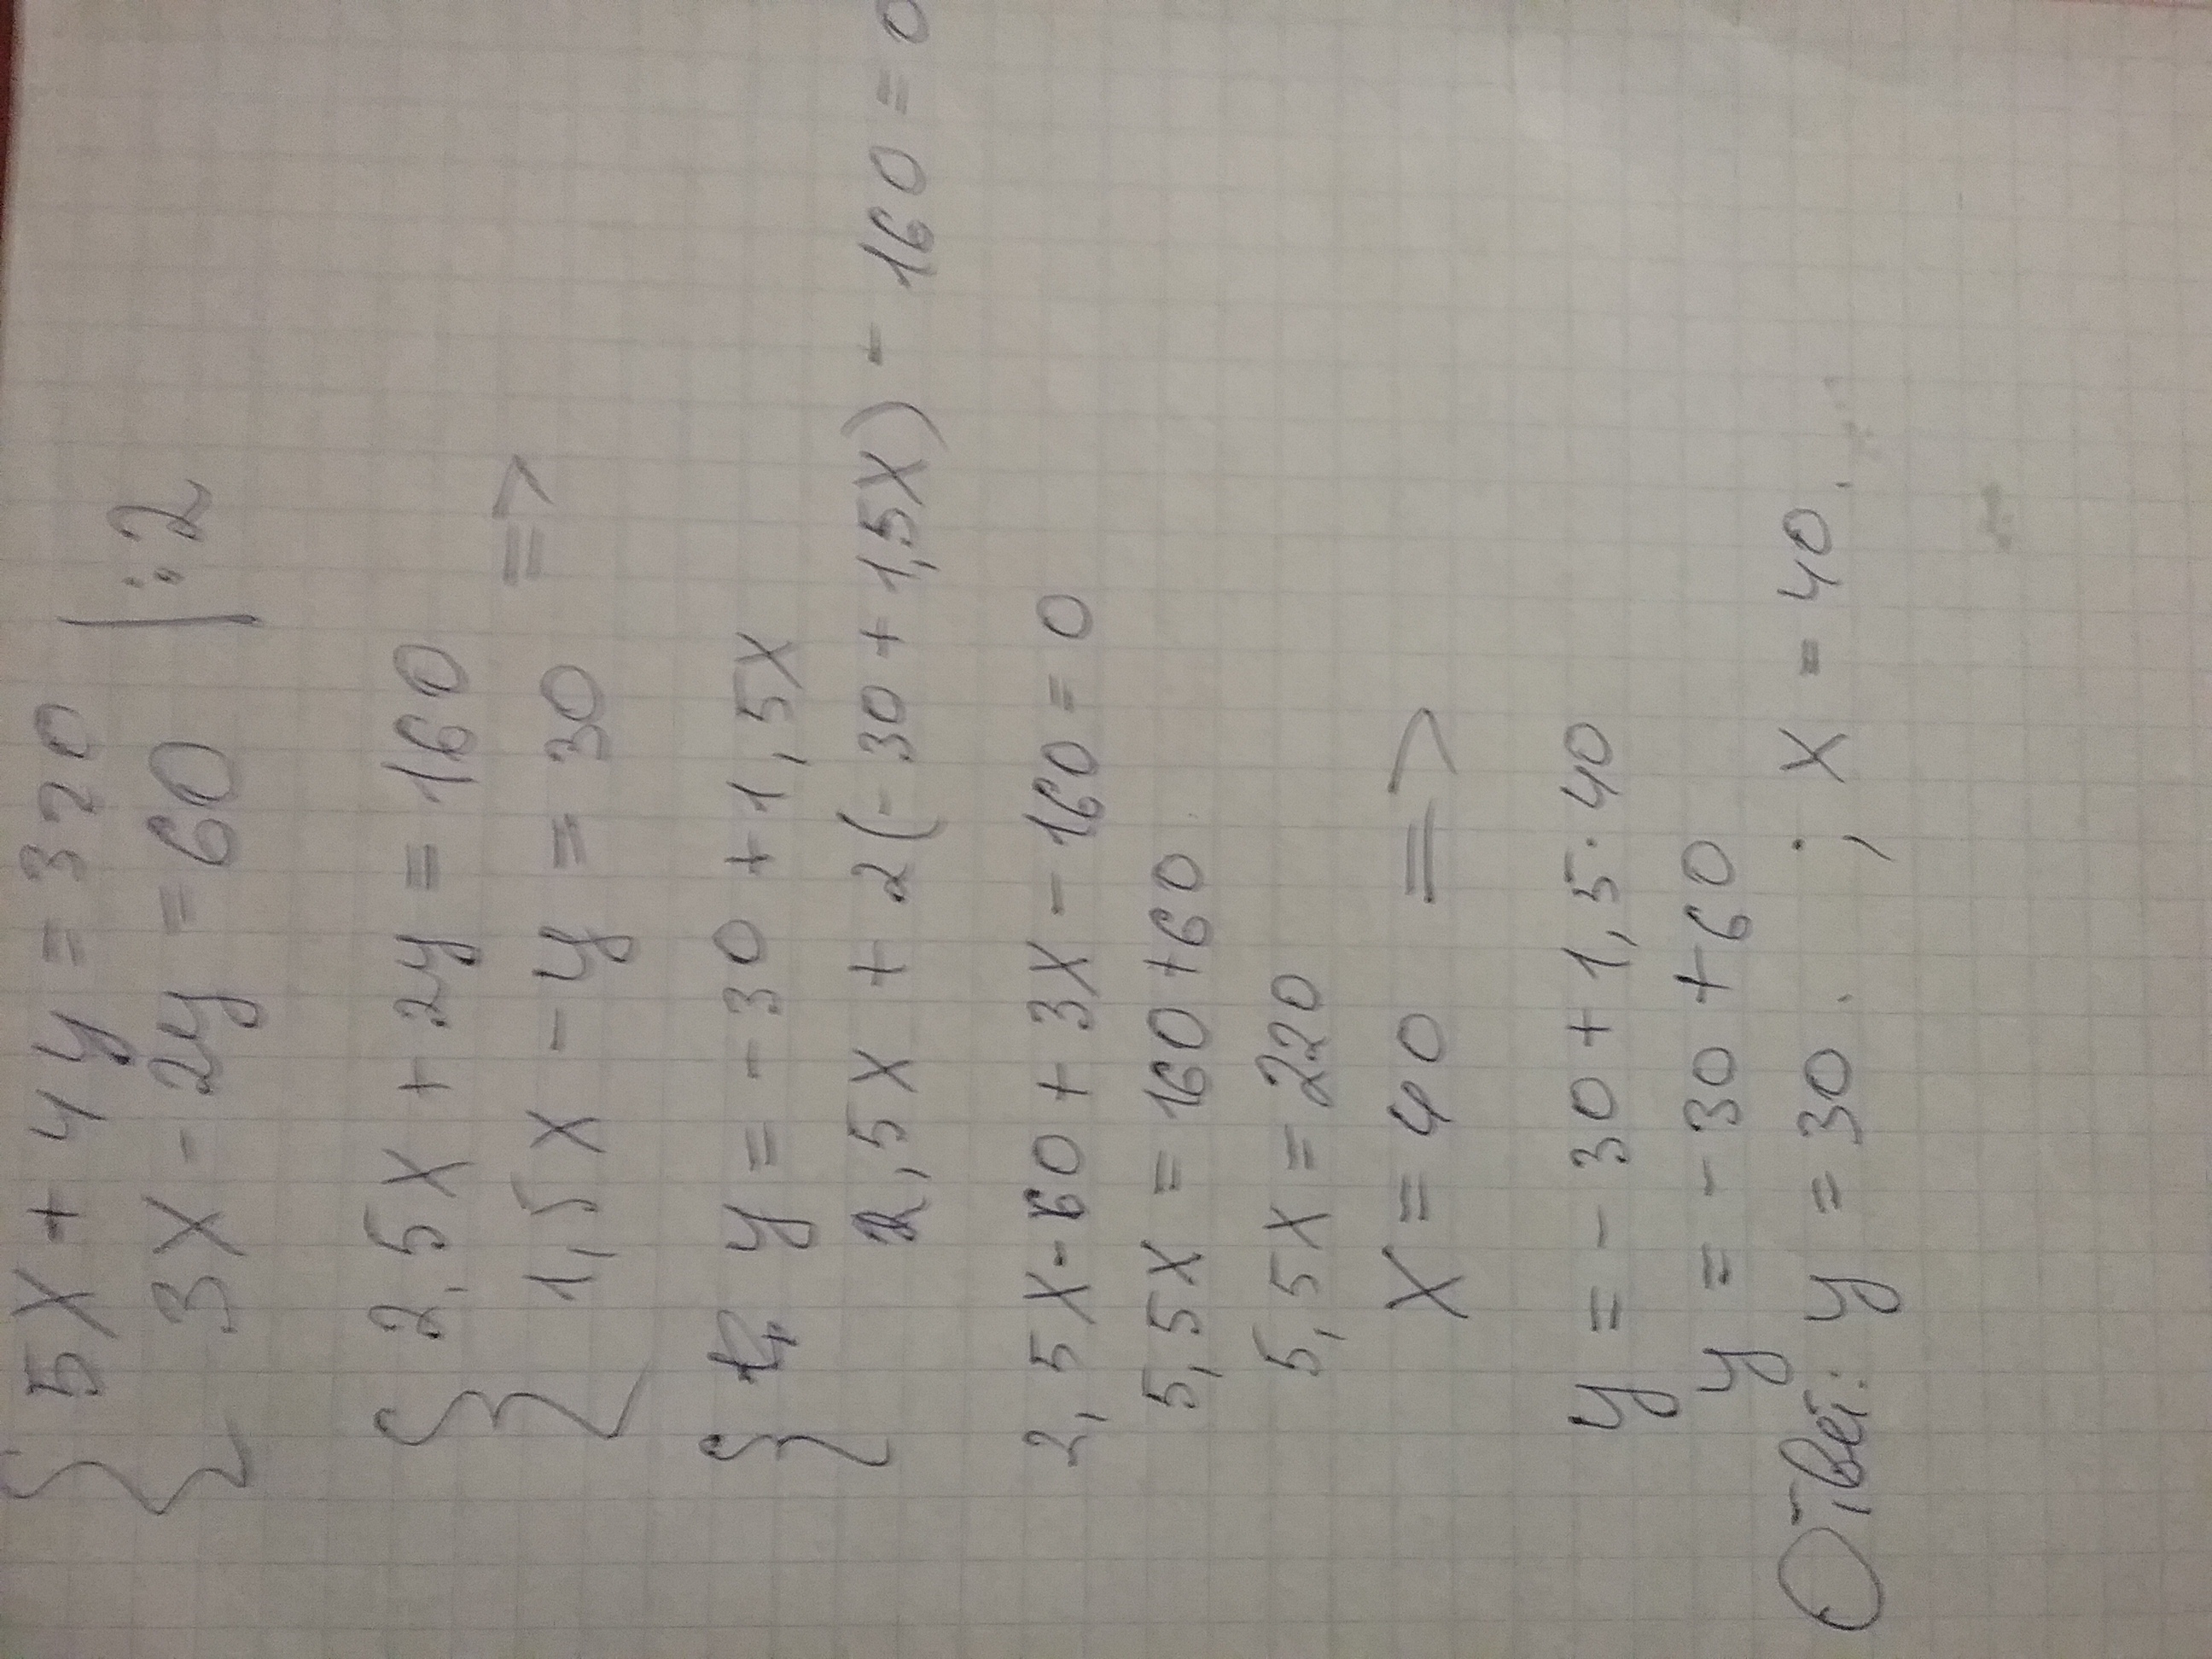 5x + 4y = 320
3x - 2y = 60 | :2
2,5x + 2y = 160
1,5x - y = 30 =>
y = -30 + 1,5x
2,5x + 2(-30 + 1,5x) - 160 = 0
2,5x - 60 + 3x - 160 = 0
5,5x = 160 + 60
5,5x = 220
x = 40 =>
y = -30 + 1,5·40
y = -30 + 60
Ответ: y = 30. ; x = 40.